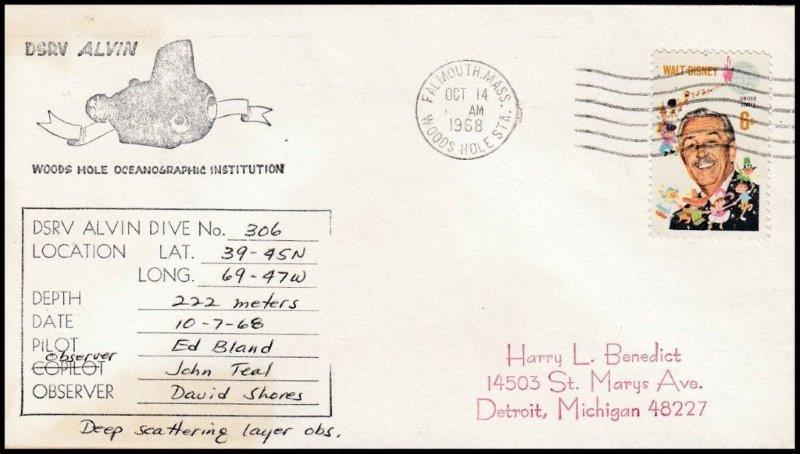 DSRV ALVIN
WOODS HOLE OCEANOGRAPHIC INSTITUTION
FALMOUTH, MASS.
OCT 14
AM
1968
WOODS HOLE STA.
WALT DISNEY
UNITED
STATES
6c
DSRV ALVIN DIVE No. 306
LOCATION LAT. 39-45N
LONG. 69-47W
DEPTH 222 meters
DATE 10-7-68
PILOT Ed Bland
observer
COPILOT John Teal
OBSERVER David Shores
Deep scattering layer obs.
Harry L. Benedict
14503 St. Marys Ave.
Detroit, Michigan 48227